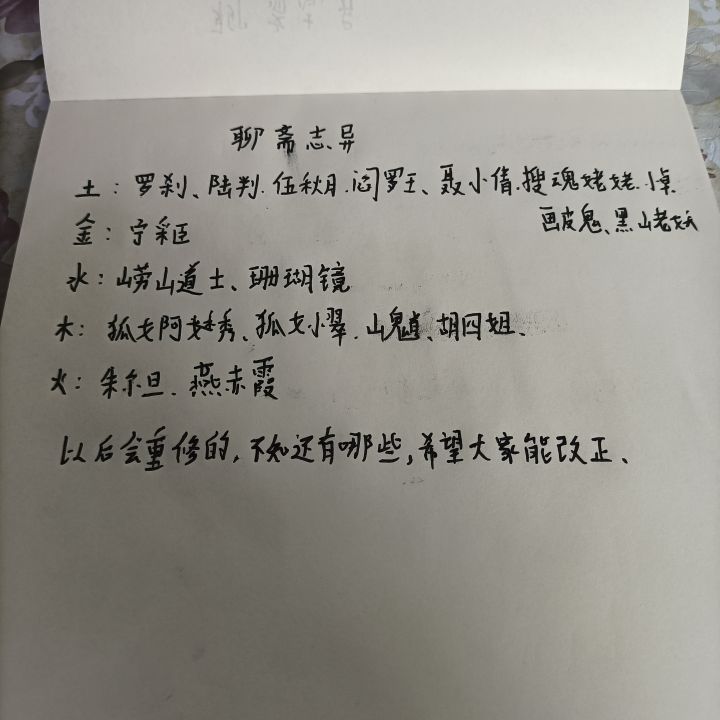 聊斋志异
土：罗刹、陆判.伍秋月.阎罗王、聂小倩.搜魂姥姥.小倬
画皮鬼、黑山老妖
金：宁采臣
水：崂山道士、珊瑚镜
木：狐女阿秀、狐女小翠.山魈、胡四姐、
火：朱尔旦.燕赤霞
以后会重修的,不知还有哪些,希望大家能改正、